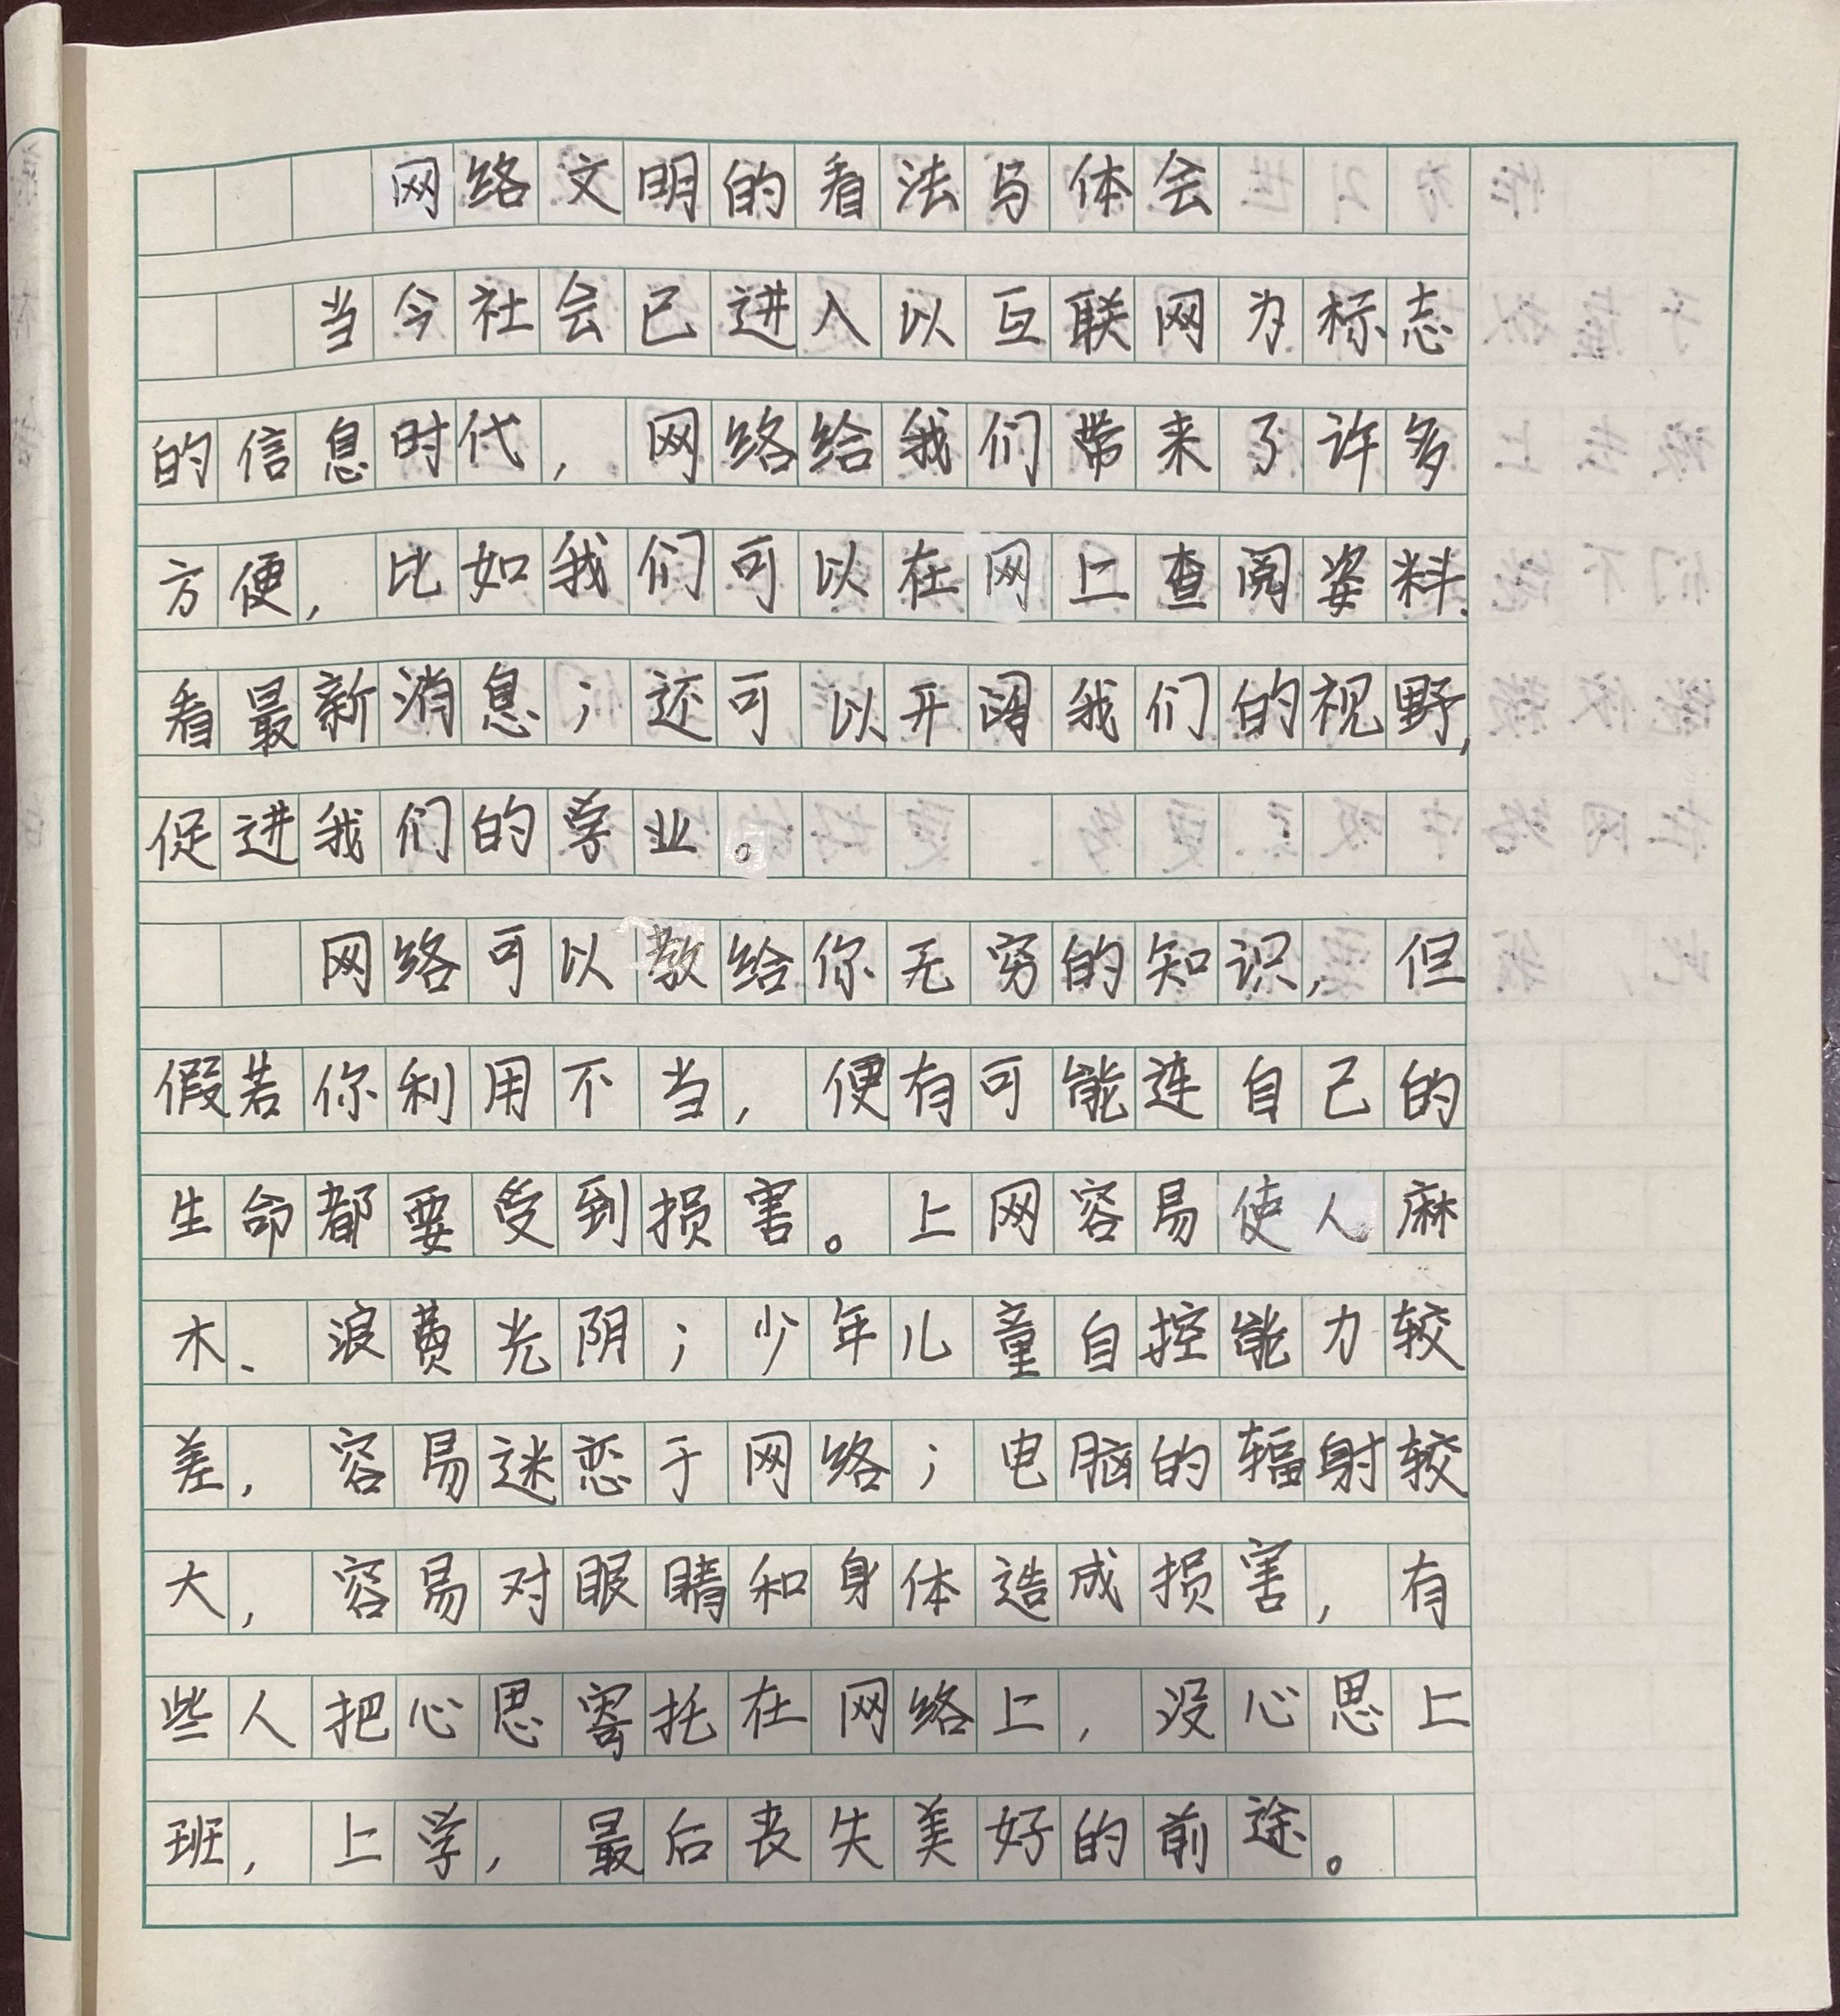 网络文明的看法与体会
当今社会已进入以互联网为标志
的信息时代，网络给我们带来了许多
方便，比如我们可以在网上查阅姿料、
看最新消息；还可以开阔我们的视野，
促进我们的学业。
网络可以教给你无穷的知识，但
假若你利用不当，便有可能连自己的
生命都要受到损害。上网容易使人麻
木、浪费光阴；少年儿童自控能力较
差，容易迷恋于网络；电脑的辐射较
大，容易对眼睛和身体造成损害，有
些人把心思寄托在网络上，没心思上
班，上学，最后丧失美好的前途。